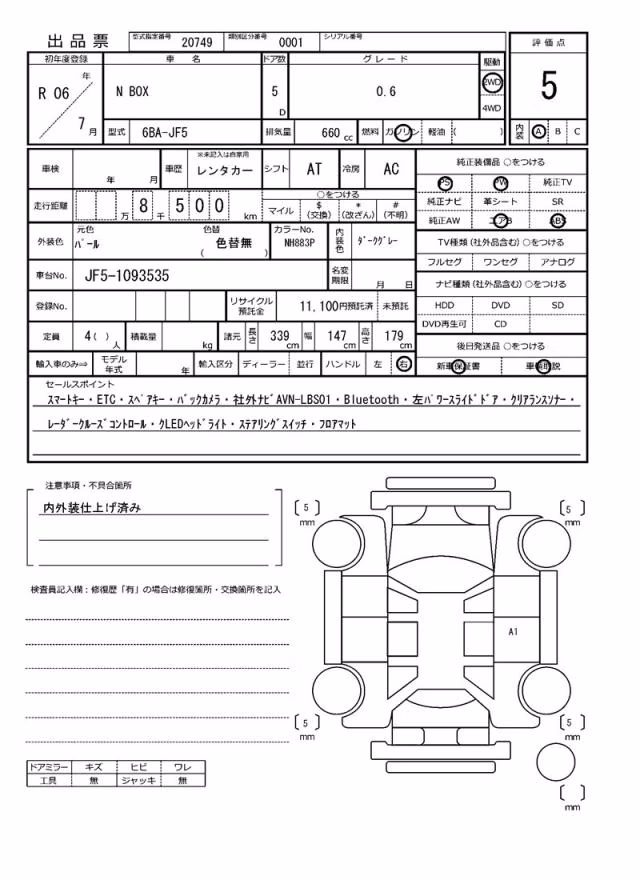 出品票
型式指定番号 20749 類別区分番号 0001 シリアル番号
評価点
5
内装 A B C
初年度登録 車名 ドア数 グレード 駆動
R 06 年 7 月
N BOX 5 D 0.6 2WD 4WD
型式 6BA-JF5 排気量 660 cc 燃料 ガソリン 軽油 ( )
車検 年 月 車歴 ※未記入は自家用 レンタカー シフト AT 冷房 AC
走行距離 万 8 千 5 0 0 km
○をつける
マイル $(交換) *(改ざん) #(不明)
外装色 元色 パール 色替 色替無 ( ) カラーNo. NH883P 内装色 ダークグレー
車台No. JF5-1093535 名変期限 月 日
登録No. リサイクル預託金 11,100円預託済 未預託
定員 4( )人 積載量 kg 諸元 長さ 339 cm 幅 147 cm 高さ 179 cm
輸入車のみ⇒ モデル年式 年 輸入区分 ディーラー 並行 ハンドル 左 右
純正装備品 ○をつける
PS PW 純正TV
純正ナビ 革シート SR
純正AW エアB ABS
TV種類(社外品含む)○をつける
フルセグ ワンセグ アナログ
ナビ種類(社外品含む)○をつける
HDD DVD SD
DVD再生可 CD
後日発送品 ○をつける
新車保証書 車輌取説
セールスポイント
スマートキー・ETC・スペアキー・バックカメラ・社外ナビAVN-LBS01・Bluetooth・左パワースライドドア・クリアランスソナー・
レーダークルーズコントロール・クLEDヘッドライト・ステアリングスイッチ・フロアマット
注意事項・不具合箇所
内外装仕上げ済み
検査員記入欄：修復歴「有」の場合は修復箇所・交換箇所を記入
ドアミラー キズ ヒビ ワレ
工具 無 ジャッキ 無
[ 5 ] mm
[ 5 ] mm
A1
[ 5 ] mm
[ 5 ] mm
[ ] mm